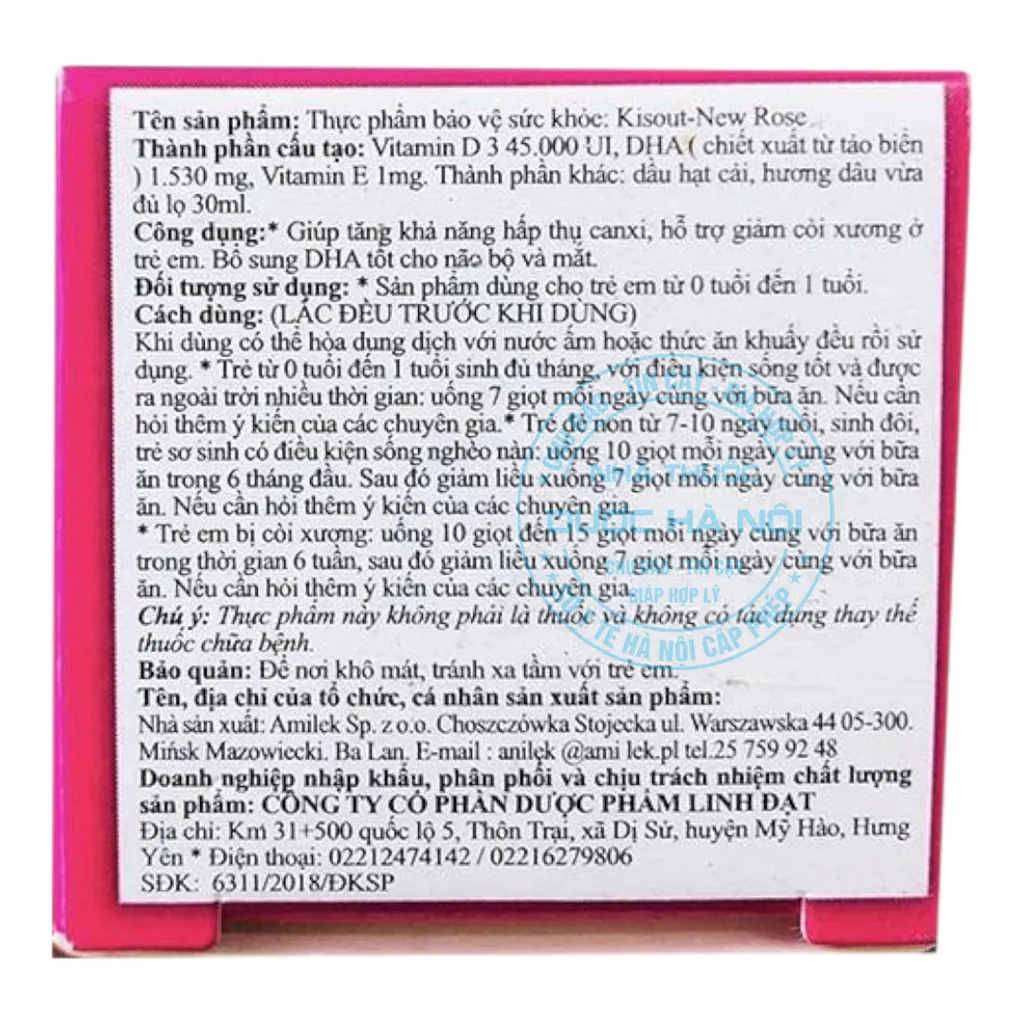 Tên sản phẩm: Thực phẩm bảo vệ sức khỏe: Kisout-New Rose
Thành phần cấu tạo: Vitamin D 3 45.000 UI, DHA ( chiết xuất từ tảo biển
) 1.530 mg, Vitamin E 1mg. Thành phần khác: dầu hạt cải, hương dâu vừa
đủ lọ 30ml.
Công dụng:* Giúp tăng khả năng hấp thụ canxi, hỗ trợ giảm còi xương ở
trẻ em. Bổ sung DHA tốt cho não bộ và mắt.
Đối tượng sử dụng: * Sản phẩm dùng cho trẻ em từ 0 tuổi đến 1 tuổi.
Cách dùng: (LẮC ĐỀU TRƯỚC KHI DÙNG)
Khi dùng có thể hòa dung dịch với nước ấm hoặc thức ăn khuấy đều rồi sử
dụng. * Trẻ từ 0 tuổi đến 1 tuổi sinh đủ tháng, với điều kiện sống tốt và được
ra ngoài trời nhiều thời gian: uống 7 giọt mỗi ngày cùng với bữa ăn. Nếu cần
hỏi thêm ý kiến của các chuyên gia.* Trẻ đẻ non từ 7-10 ngày tuổi, sinh đôi,
trẻ sơ sinh có điều kiện sống nghèo nàn: uống 10 giọt mỗi ngày cùng với bữa
ăn trong 6 tháng đầu. Sau đó giảm liều xuống 7 giọt mỗi ngày cùng với bữa
ăn. Nếu cần hỏi thêm ý kiến của các chuyên gia.
* Trẻ em bị còi xượng: uống 10 giọt đến 15 giọt mỗi ngày cùng với bữa ăn
trong thời gian 6 tuần, sau đó giảm liều xuống 7 giọt mỗi ngày cùng với bữa
ăn. Nếu cần hỏi thêm ý kiến của các chuyên gia.
Chú ý: Thực phẩm này không phải là thuốc và không có tác dụng thay thế
thuốc chữa bệnh.
Bảo quản: Để nơi khô mát, tránh xa tầm với trẻ em.
Tên, địa chỉ của tổ chức, cá nhân sản xuất sản phẩm:
Nhà sản xuất: Amilek Sp. z o.o. Choszczówka Stojecka ul. Warszawska 44 05-300.
Mińsk Mazowiecki. Ba Lan. E-mail : anilęk @ami lek.pl tel.25 759 92 48
Doanh nghiệp nhập khẩu, phân phối và chịu trách nhiệm chất lượng
sản phẩm: CÔNG TY CỔ PHẦN DƯỢC PHẨM LINH ĐẠT
Địa chỉ: Km 31+500 quốc lộ 5, Thôn Trại, xã Dị Sử, huyện Mỹ Hào, Hưng
Yên * Điện thoại: 02212474142 / 02216279806
SĐK: 6311/2018/ĐKSP
CHU ĐÁO - TIN CẬY - GIÁ HỢP LÝ
NHÀ THUỐC
DƯỢC HÀ NỘI
CHU ĐÁO - TIN CẬY
GIÁP HỢP LÝ
SỞ Y TẾ HÀ NỘI CẤP PHÉP